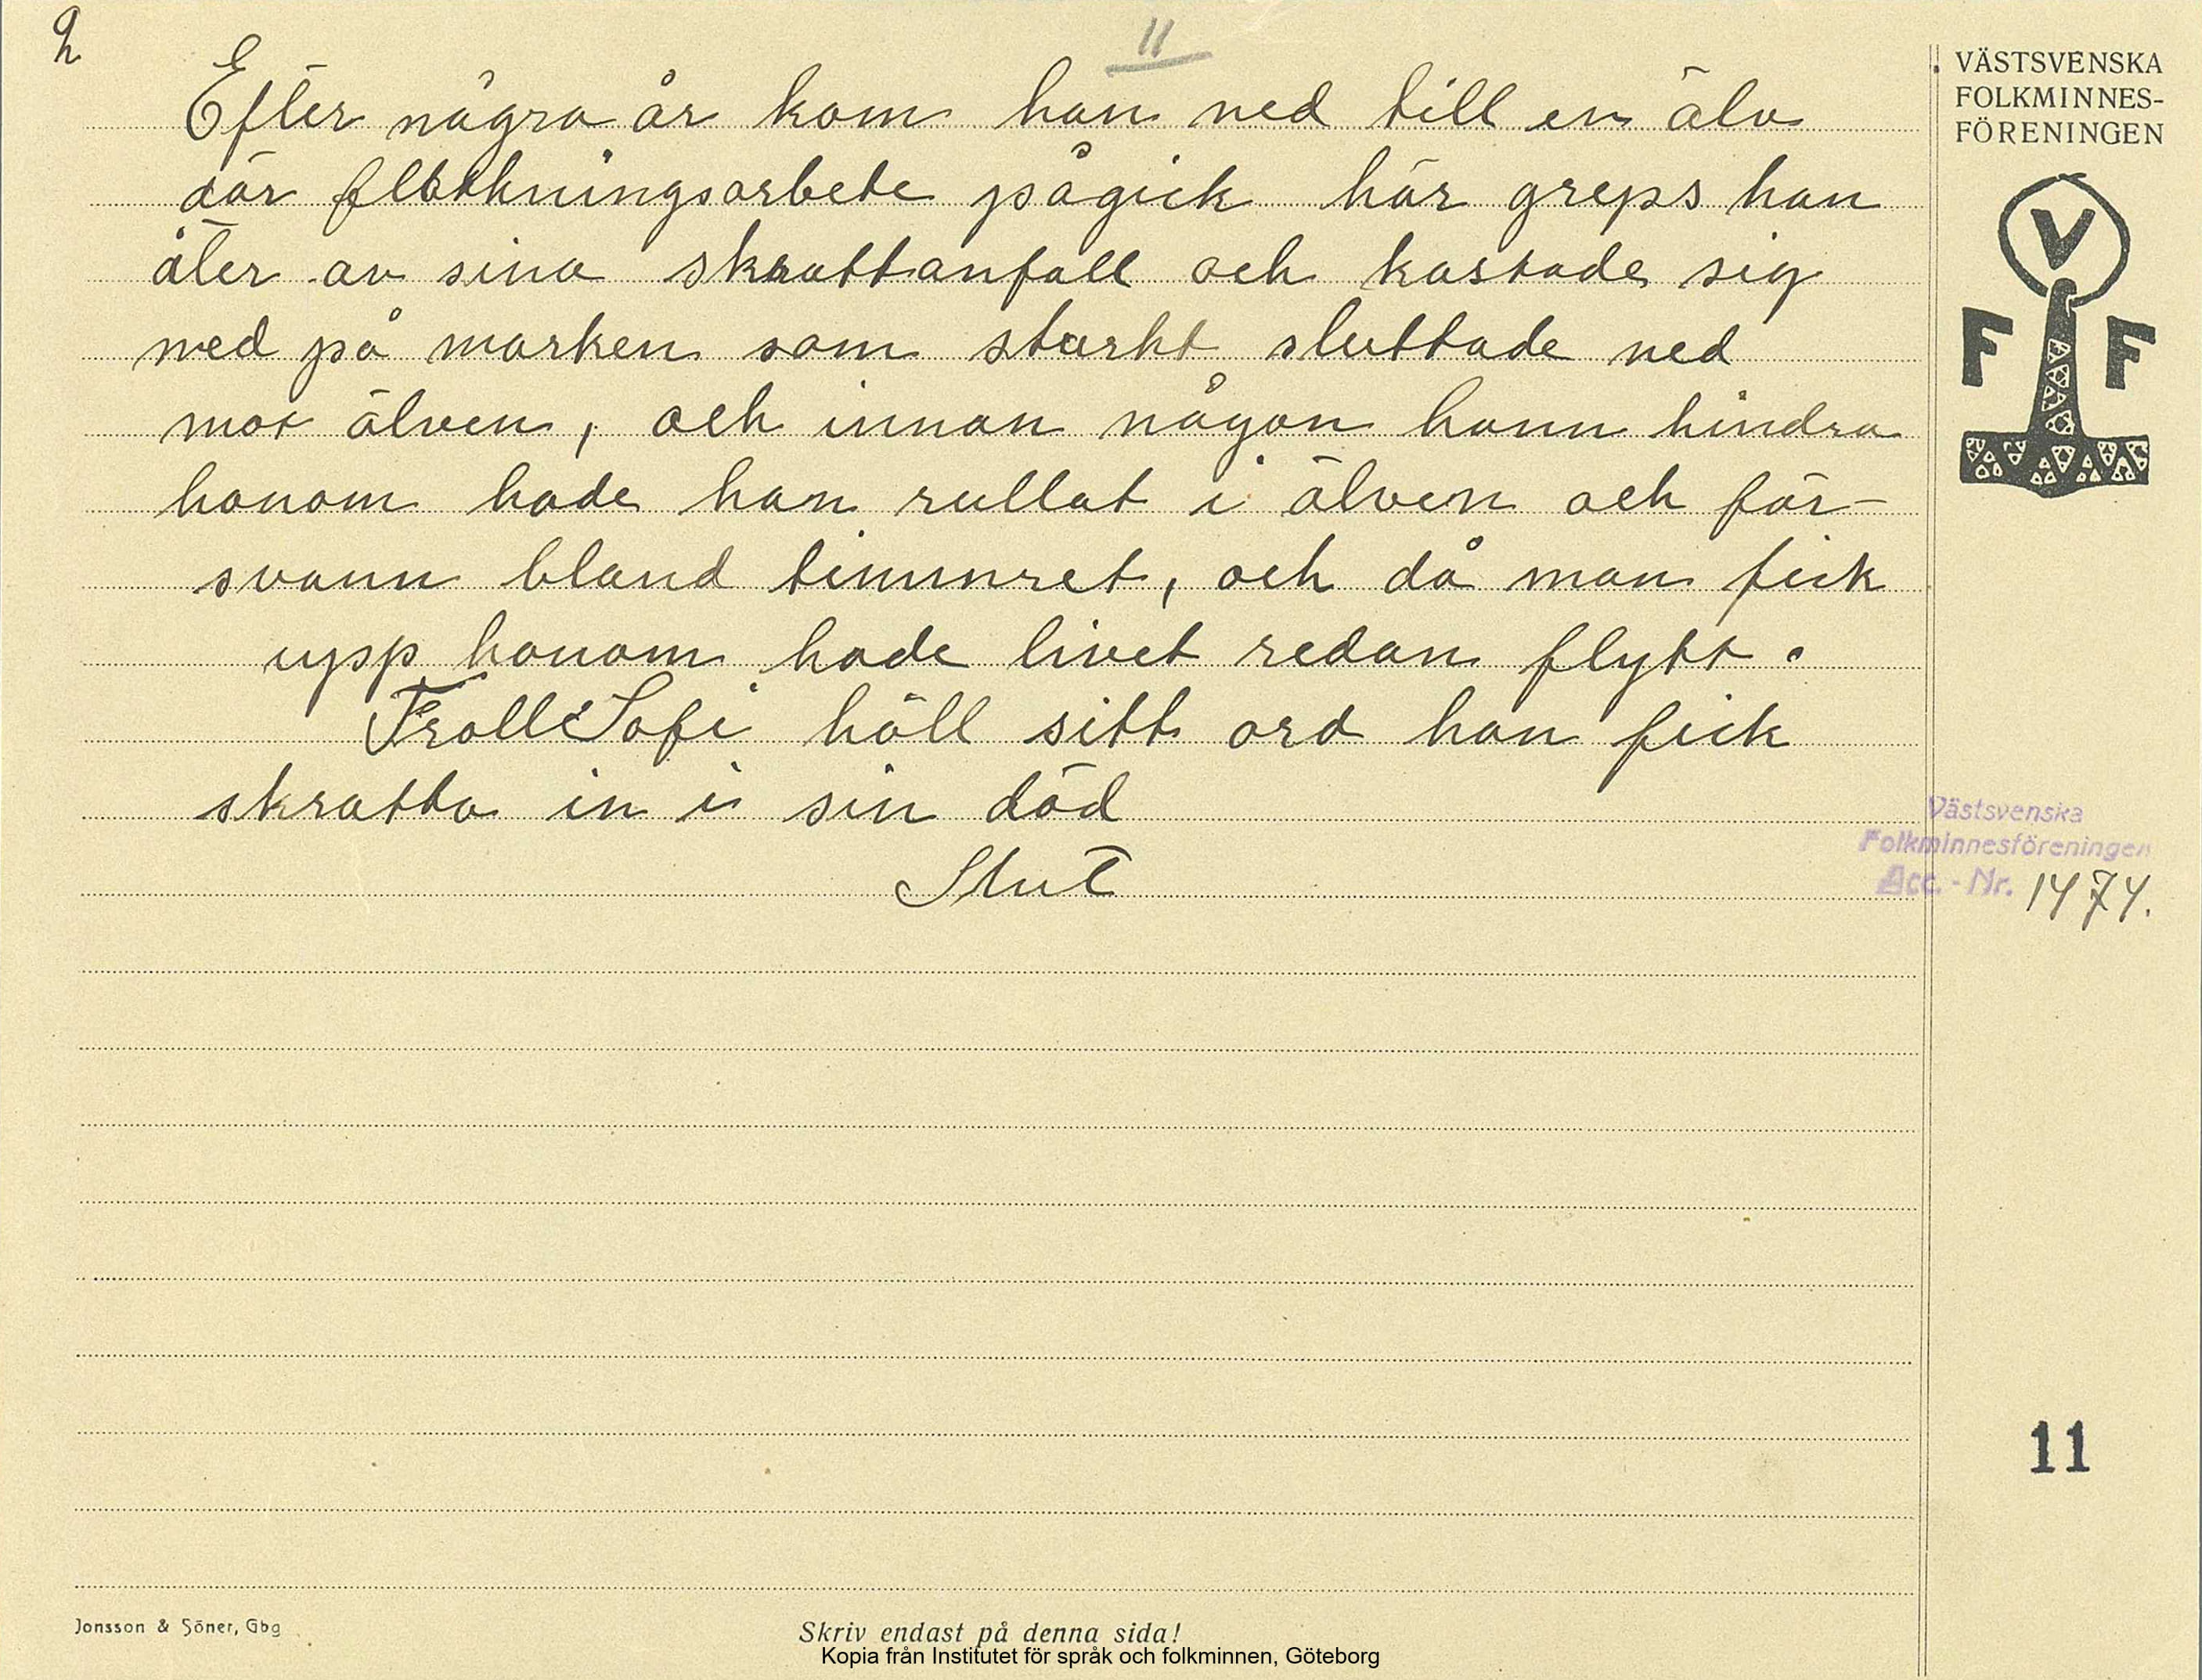 2
11
Efter några år kom han ned till en älv
där flottningsarbete pågick här greps han
åter av sina skrattanfall och kastade sig
ned på marken som starkt sluttade ned
mot älven, och innan någon hann hindra
honom hade han rullat i älven och för-
svann bland timmret, och då man fick
upp honom hade livet redan flytt.
Troll Sofi höll sitt ord han fick
skratta in i sin död
Slut
VÄSTSVENSKA
FOLKMINNES-
FÖRENINGEN
V
F F
Västsvenska
Folkminnesföreningen
Acc.-Nr. 1474.
11
Jonsson & Söner, Gbg
Skriv endast på denna sida!
Kopia från Institutet för språk och folkminnen, Göteborg